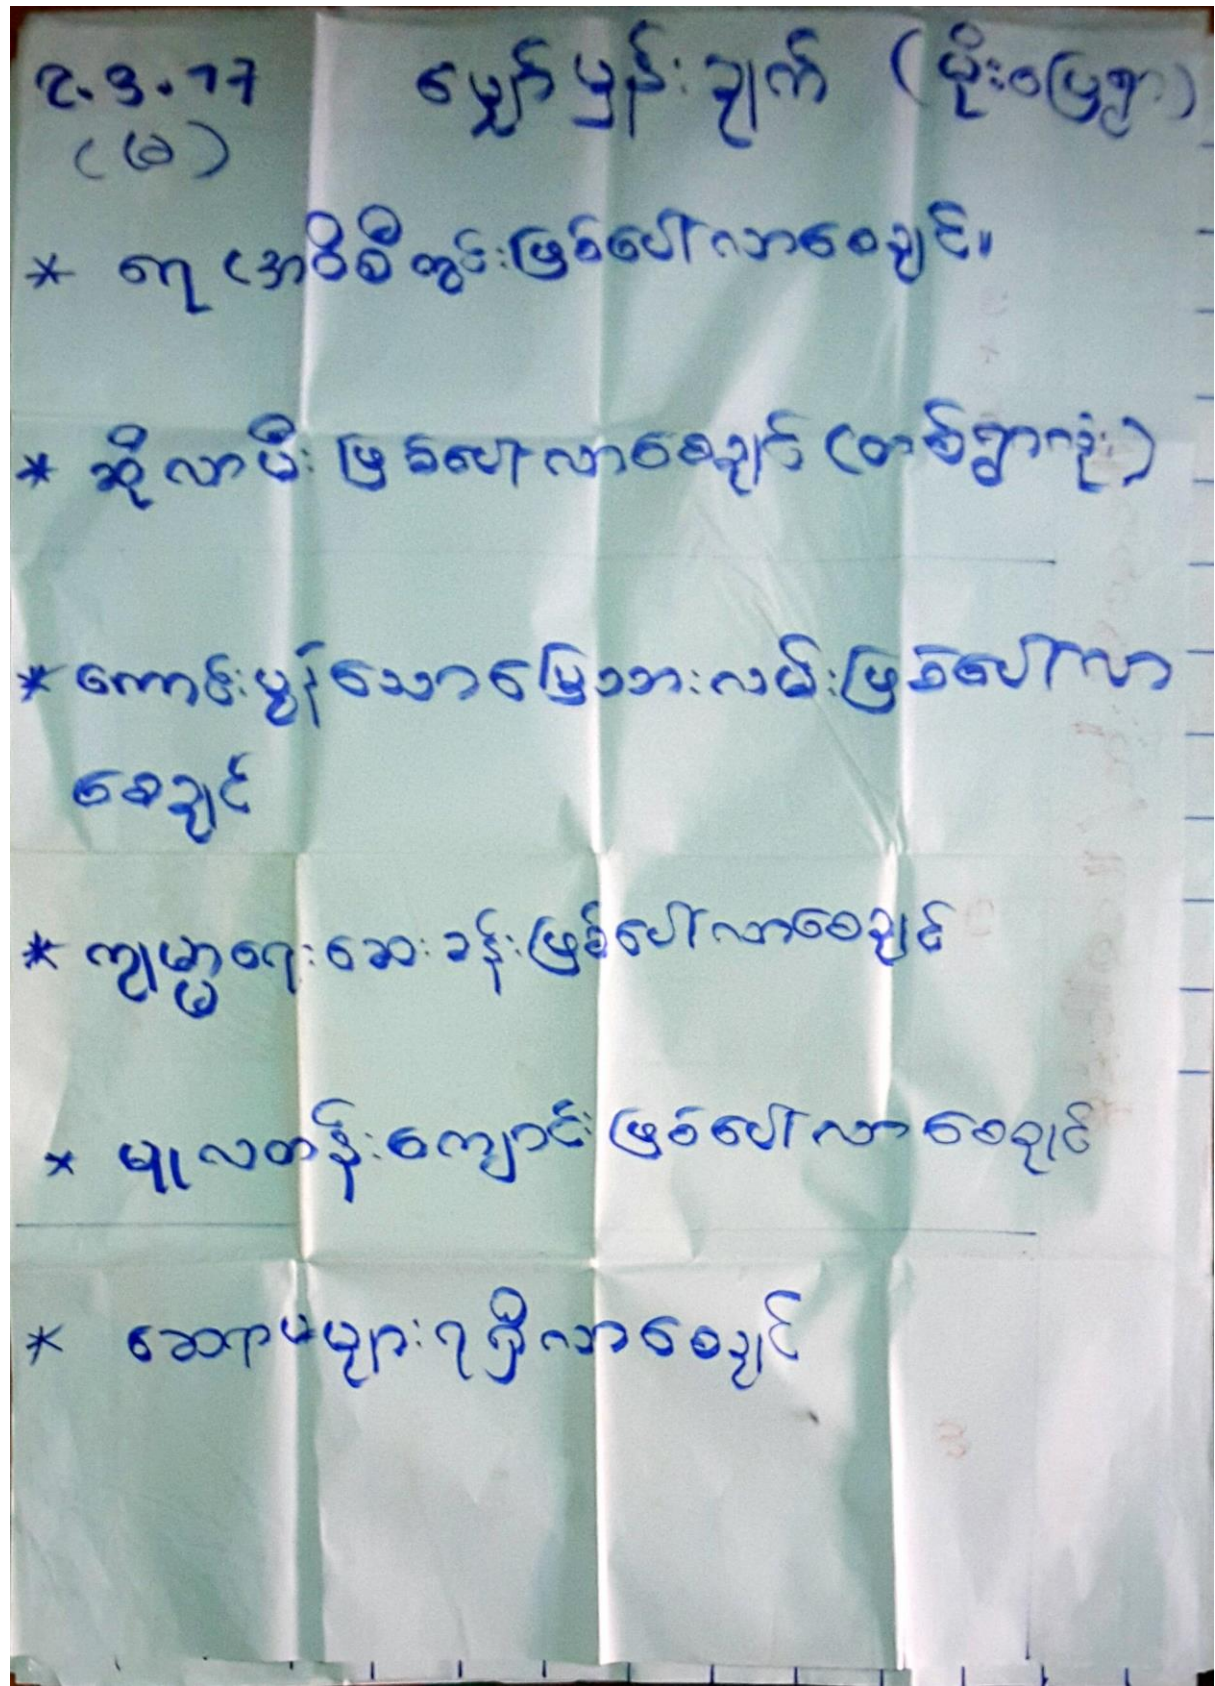 ၃.၁.၁၇ မျှော်မှန်းချက် (မိုးမြေရွာ)
(ခ)
* ရေ (အဝီစိတွင်းဖြစ်ပေါ်လာစေချင်။
* ဆိုလာမီး ဖြစ်ပေါ်လာစေချင် (တစ်ရွာလုံး)
* ကောင်းမွန်သောမြေသားလမ်းဖြစ်ပေါ်လာ
စေချင်
* ကျန်းမာရေးဆေးခန်းဖြစ်ပေါ်လာစေချင်
* မူလတန်းကျောင်း ဖြစ်ပေါ်လာစေချင်
* ဆရာမများရရှိလာစေချင်